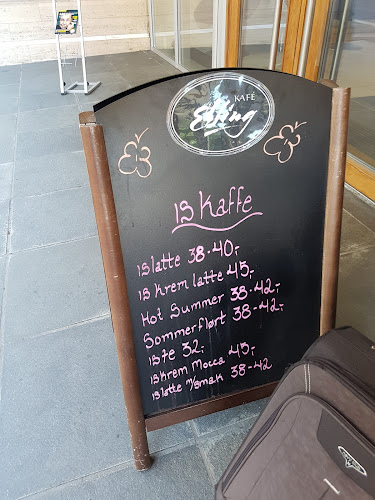 KAFÉ
Esking
is Kaffe
islatte 38-40,-
is krem latte 45,-
Hot Summer 38-42,-
Sommerflørt 38-42,-
is te 32,-
iskrem Mocca 45,-
islatte m/smak 38-42